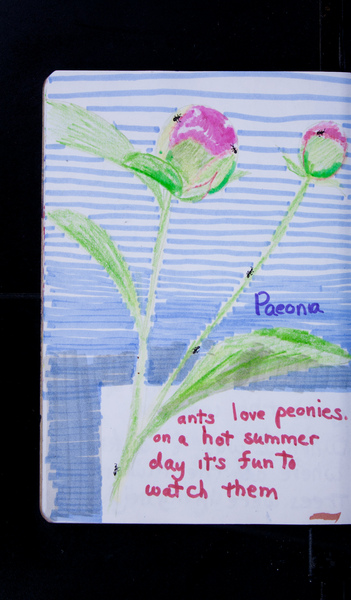 Paeonia
ants love peonies.
on a hot summer
day it's fun to
watch them